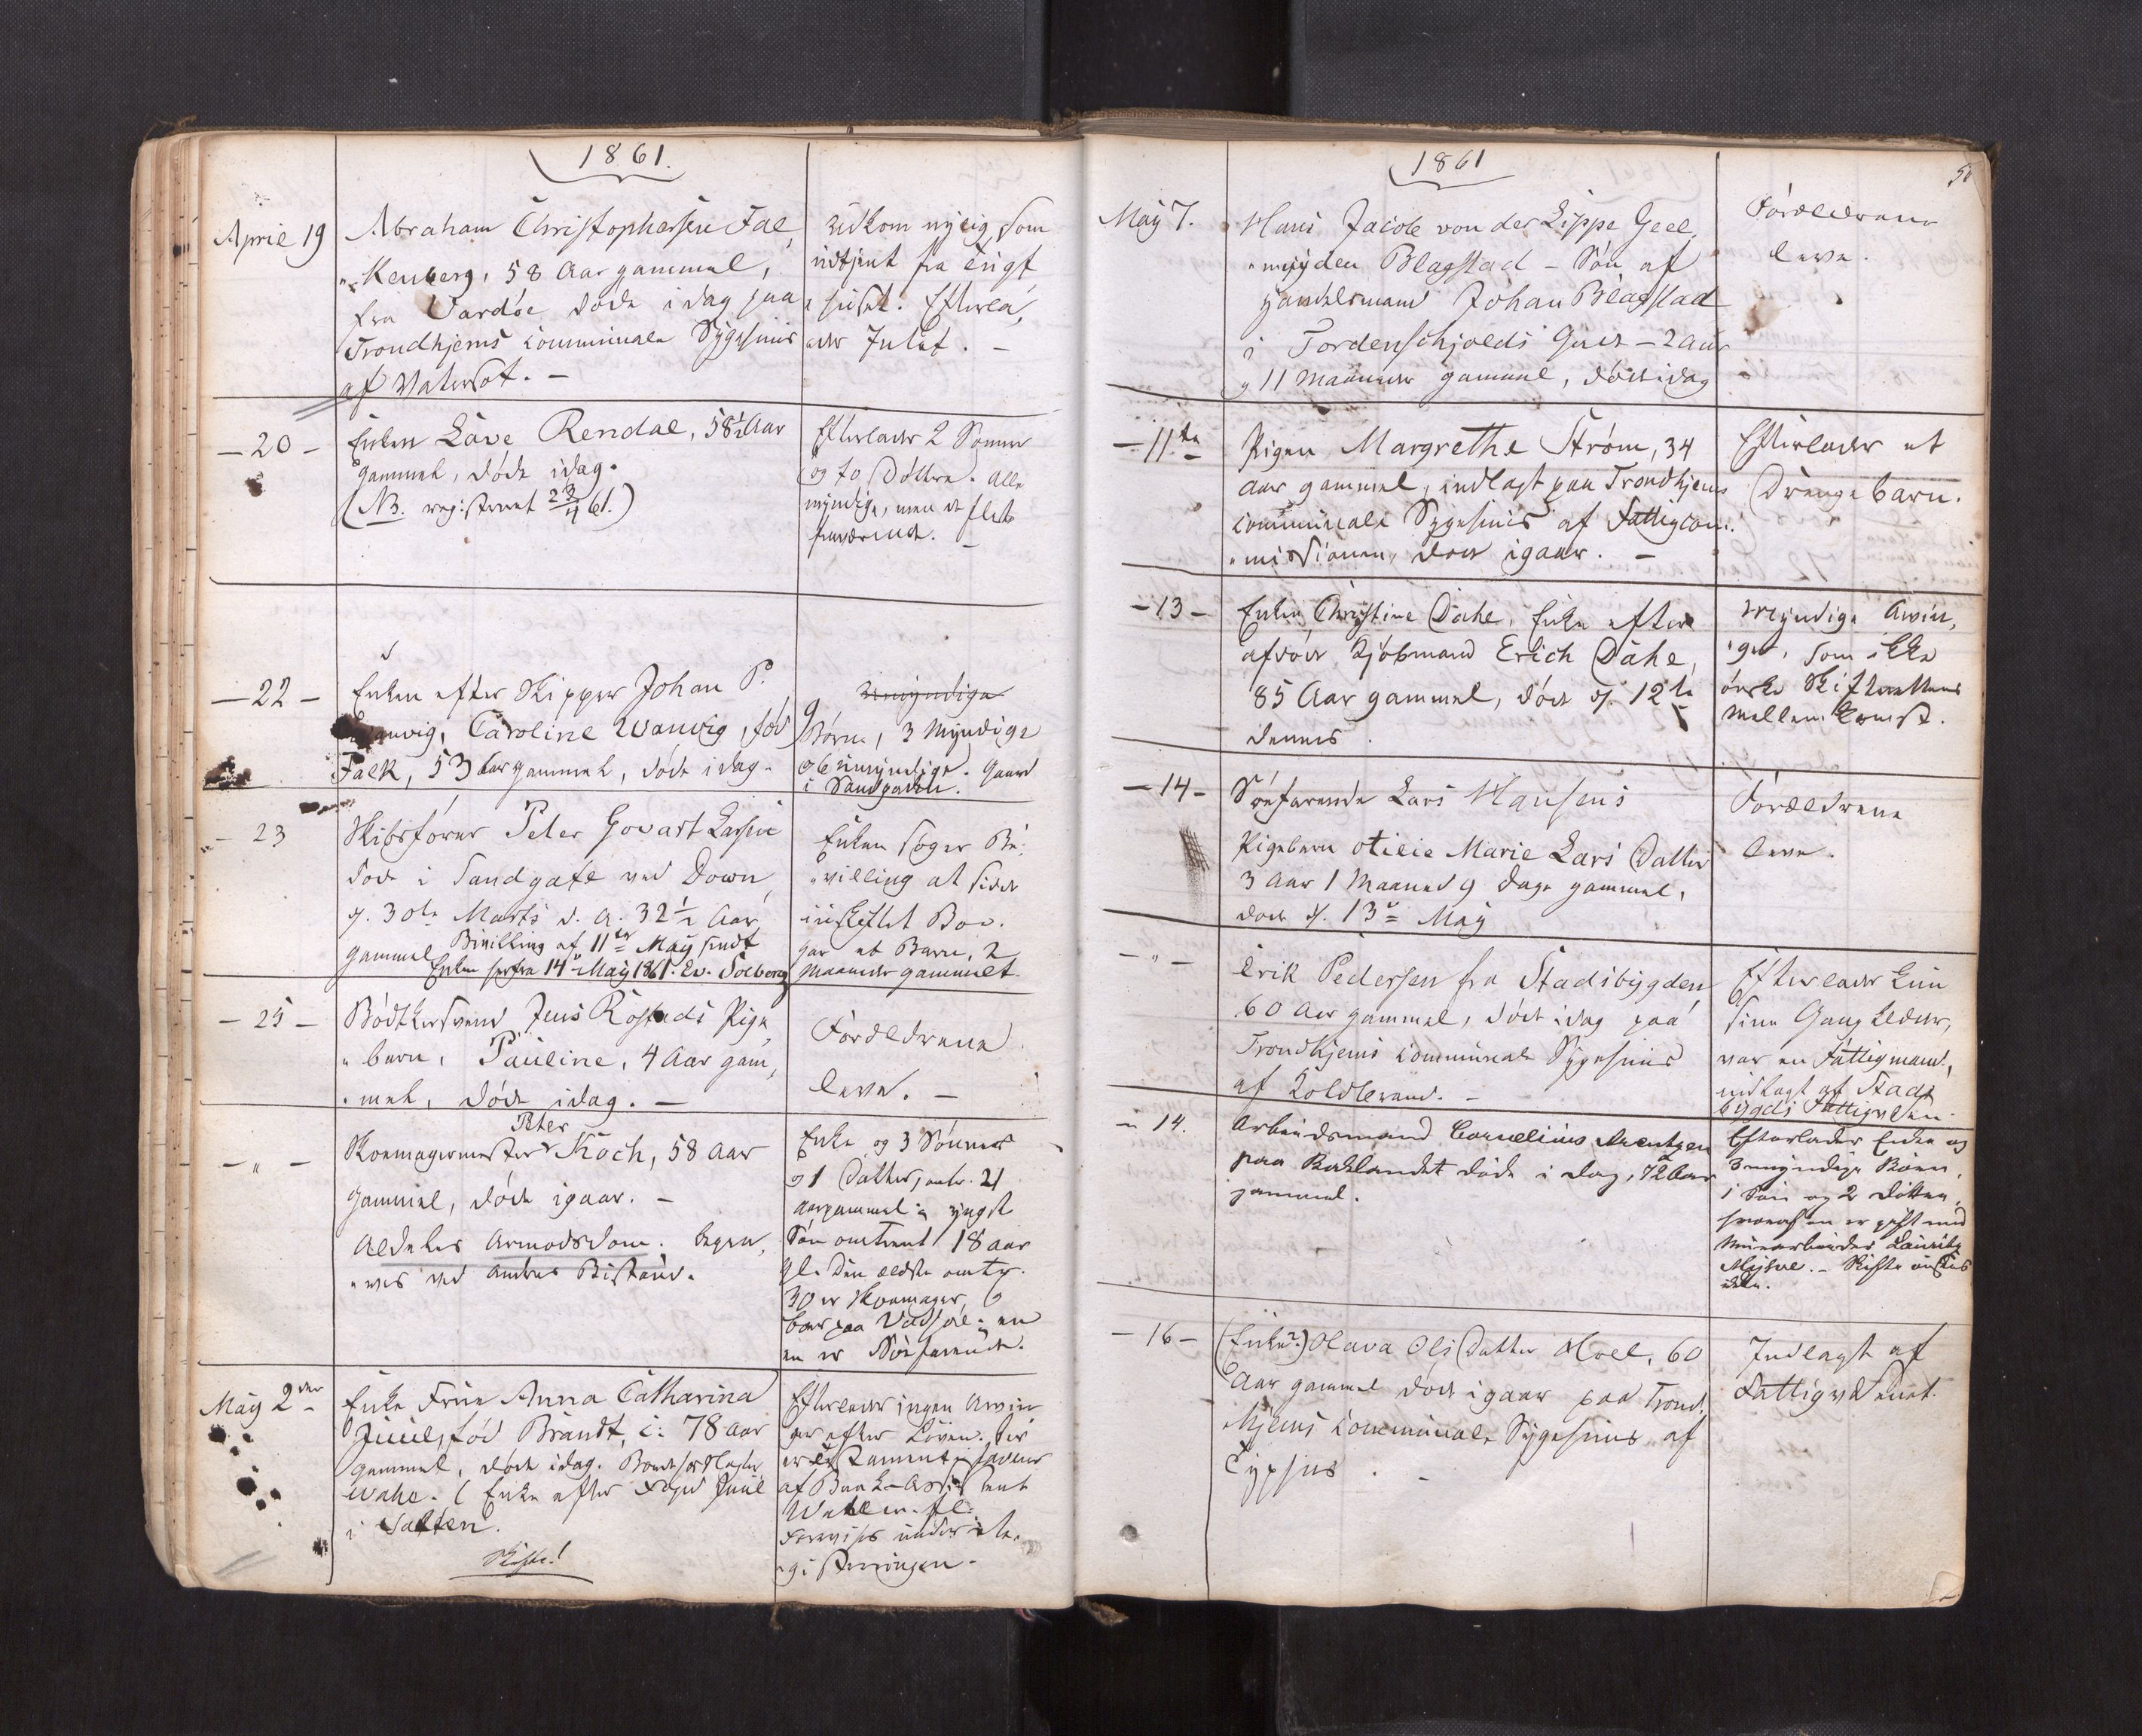 1861.
April 19
Abraham Christophersen Fal,
"kenberg, 58 Aar gammel,
fra Vardøe døde i dag paa
Trondhjems communale Sygehuus
af Vatersot. —
Udkom nylig som
udtjent fra Tugt
huset. Efterla,
der Intet. —
— 20 —
Enken Lave Rendal, 58½ Aar
gammel, døde idag.
(NB. registeret 23/4 61.)
Efterlader 2 Sønner
og to Døttre. Alle
myndige, men de fleste
fraværende. —
— 22 —
Enken efter Skipper Johan P.
Wanvig, Caroline Wanvig, fød
Falk, 53 Aar gammel, døde idag.
9
Børn, 3 Myndige
og 6 umyndige. Gaard
i Sandgaden.
— 23
Skibsfører Peter Govart Larsen
døde i Sandgate ved Down
d. 30te Marts d. A. 32½ Aar
gammel Bevilling af 11te May sendt
Enken herfra 14de May 1861. Ev. Solberg
Enken søger Be,
"villing at sidde
i uskiftet Boe.
har et Barn, 2
Maaneder gammelt
— 25 —
Bødkersvend Jens Røstads Pige,
"barn, Pauline, 4 Aar gam,
"mel, døde idag. —
Forældrene
leve. —
— " —
Peter
Skomagermester Koch, 58 Aar
gammel, døde igaar. —
Aldeles Armodsdom. Begra,
"ves ved Andres Bistand.
Enke og 3 Sønner
og 1 Datter, omtr. 21
Aar gammel; yngste
Søn omtrent 18 Aar
gl. Den ældste omtr.
30 er Skomager,
boer paa Vadsøe; en
er Søefarende.
May 2den
Enke Frue Anna Catharina
Juul, fød Brandt, c: 78 Aar
gammel, døde idag.
(Enke efter Foged Juul
i Salten.
Skifte!
Efterlader ingen Arvin
ger efter Loven.
af Bank-Assistent
under Re,
"gistreringen.
1861
50
May 7.
Hans Jacob von der Lippe Geel,
"muyden Blagstad — Søn af
Handelsmand Johan Blagstad
i Tordenschjolds Gade — 2 Aar
og 11 Maaneder gammel, død idag
Forældrene
leve.
— 11te
Pigen Margrethe Strøm, 34
Aar gammel, indlagt paa Trondhjems
communale Sygehuus af Fattigcom.
"missionen, døde igaar. —
Efterlader et
Drengebarn.
— 13 —
Enken Christine Dahe, Enke efter
afdøde Kjøbmand Erich Dahe,
85 Aar gammel, døde d. 12te
dennes.
Myndige Arvin,
"ger, som ikke
ønske Skifterettens
Mellemkomst.
— 14 —
Søefarende Lars Hansens
Pigebarn Otilie Marie Lars Datter
3 Aar 1 Maaned 9 Dage gammel,
døde d. 13de May
Forældrene
leve.
— " —
Erik Pedersen fra Stadsbygden,
60 Aar gammel, døde idag paa
Trondhjems communale Sygehuus
af Koldbrand. —
Efterlader kun
sine Gangklæder,
var en Fattigmand,
indlagt af Stads
bygds Fattigvæsen.
— 14.
Arbeidsmand Cornelius Arentzen
paa Baklandet døde i dag, 72 Aar
gammel.
Efterlader Enke og
3 myndige Børn,
1 Søn og 2 Døttre,
hvoraf en er gift med
Muurarbeider Lauritz
Skifte ønskes
ikke.
— 16 —
(Enke?) Olava Ols Datter Moel, 60
Aar gammel døde igaar paa Trond,
hjems communale Sygehuus af
Typhus. —
Indlagt af
Fattigvæsenet.